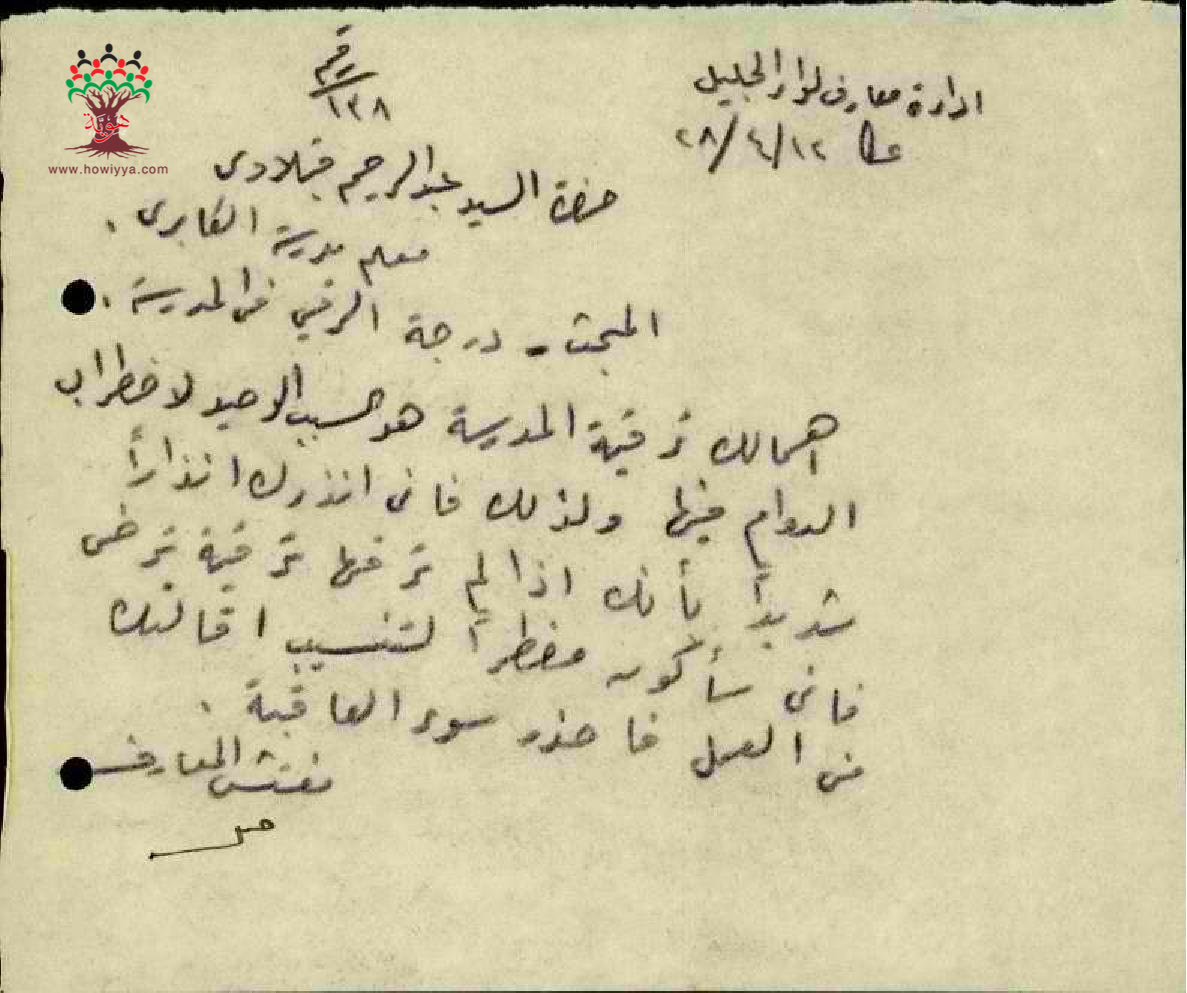 ادارة معارف لواء الجليل
رقم
١٣٨
عكا ١٢/٤/٢٨
حضرة السيد عبد الرحيم
معلم مدرسة الكابري .
المبحث - درجة الرقي في المدرسة .
اهمالك ترقية المدرسة هو السبب الوحيد لاضطراب
الدوام فيها ولذلك فاني انذرك انذاراً
شديداً بأنك اذا لم ترقها ترقية ترضى
فاني سأكون مضطراً لتنسيب اقالتك
من العمل فاحذر سوء العاقبة .
مفتش المعارف
www.howiyya.com
هوية